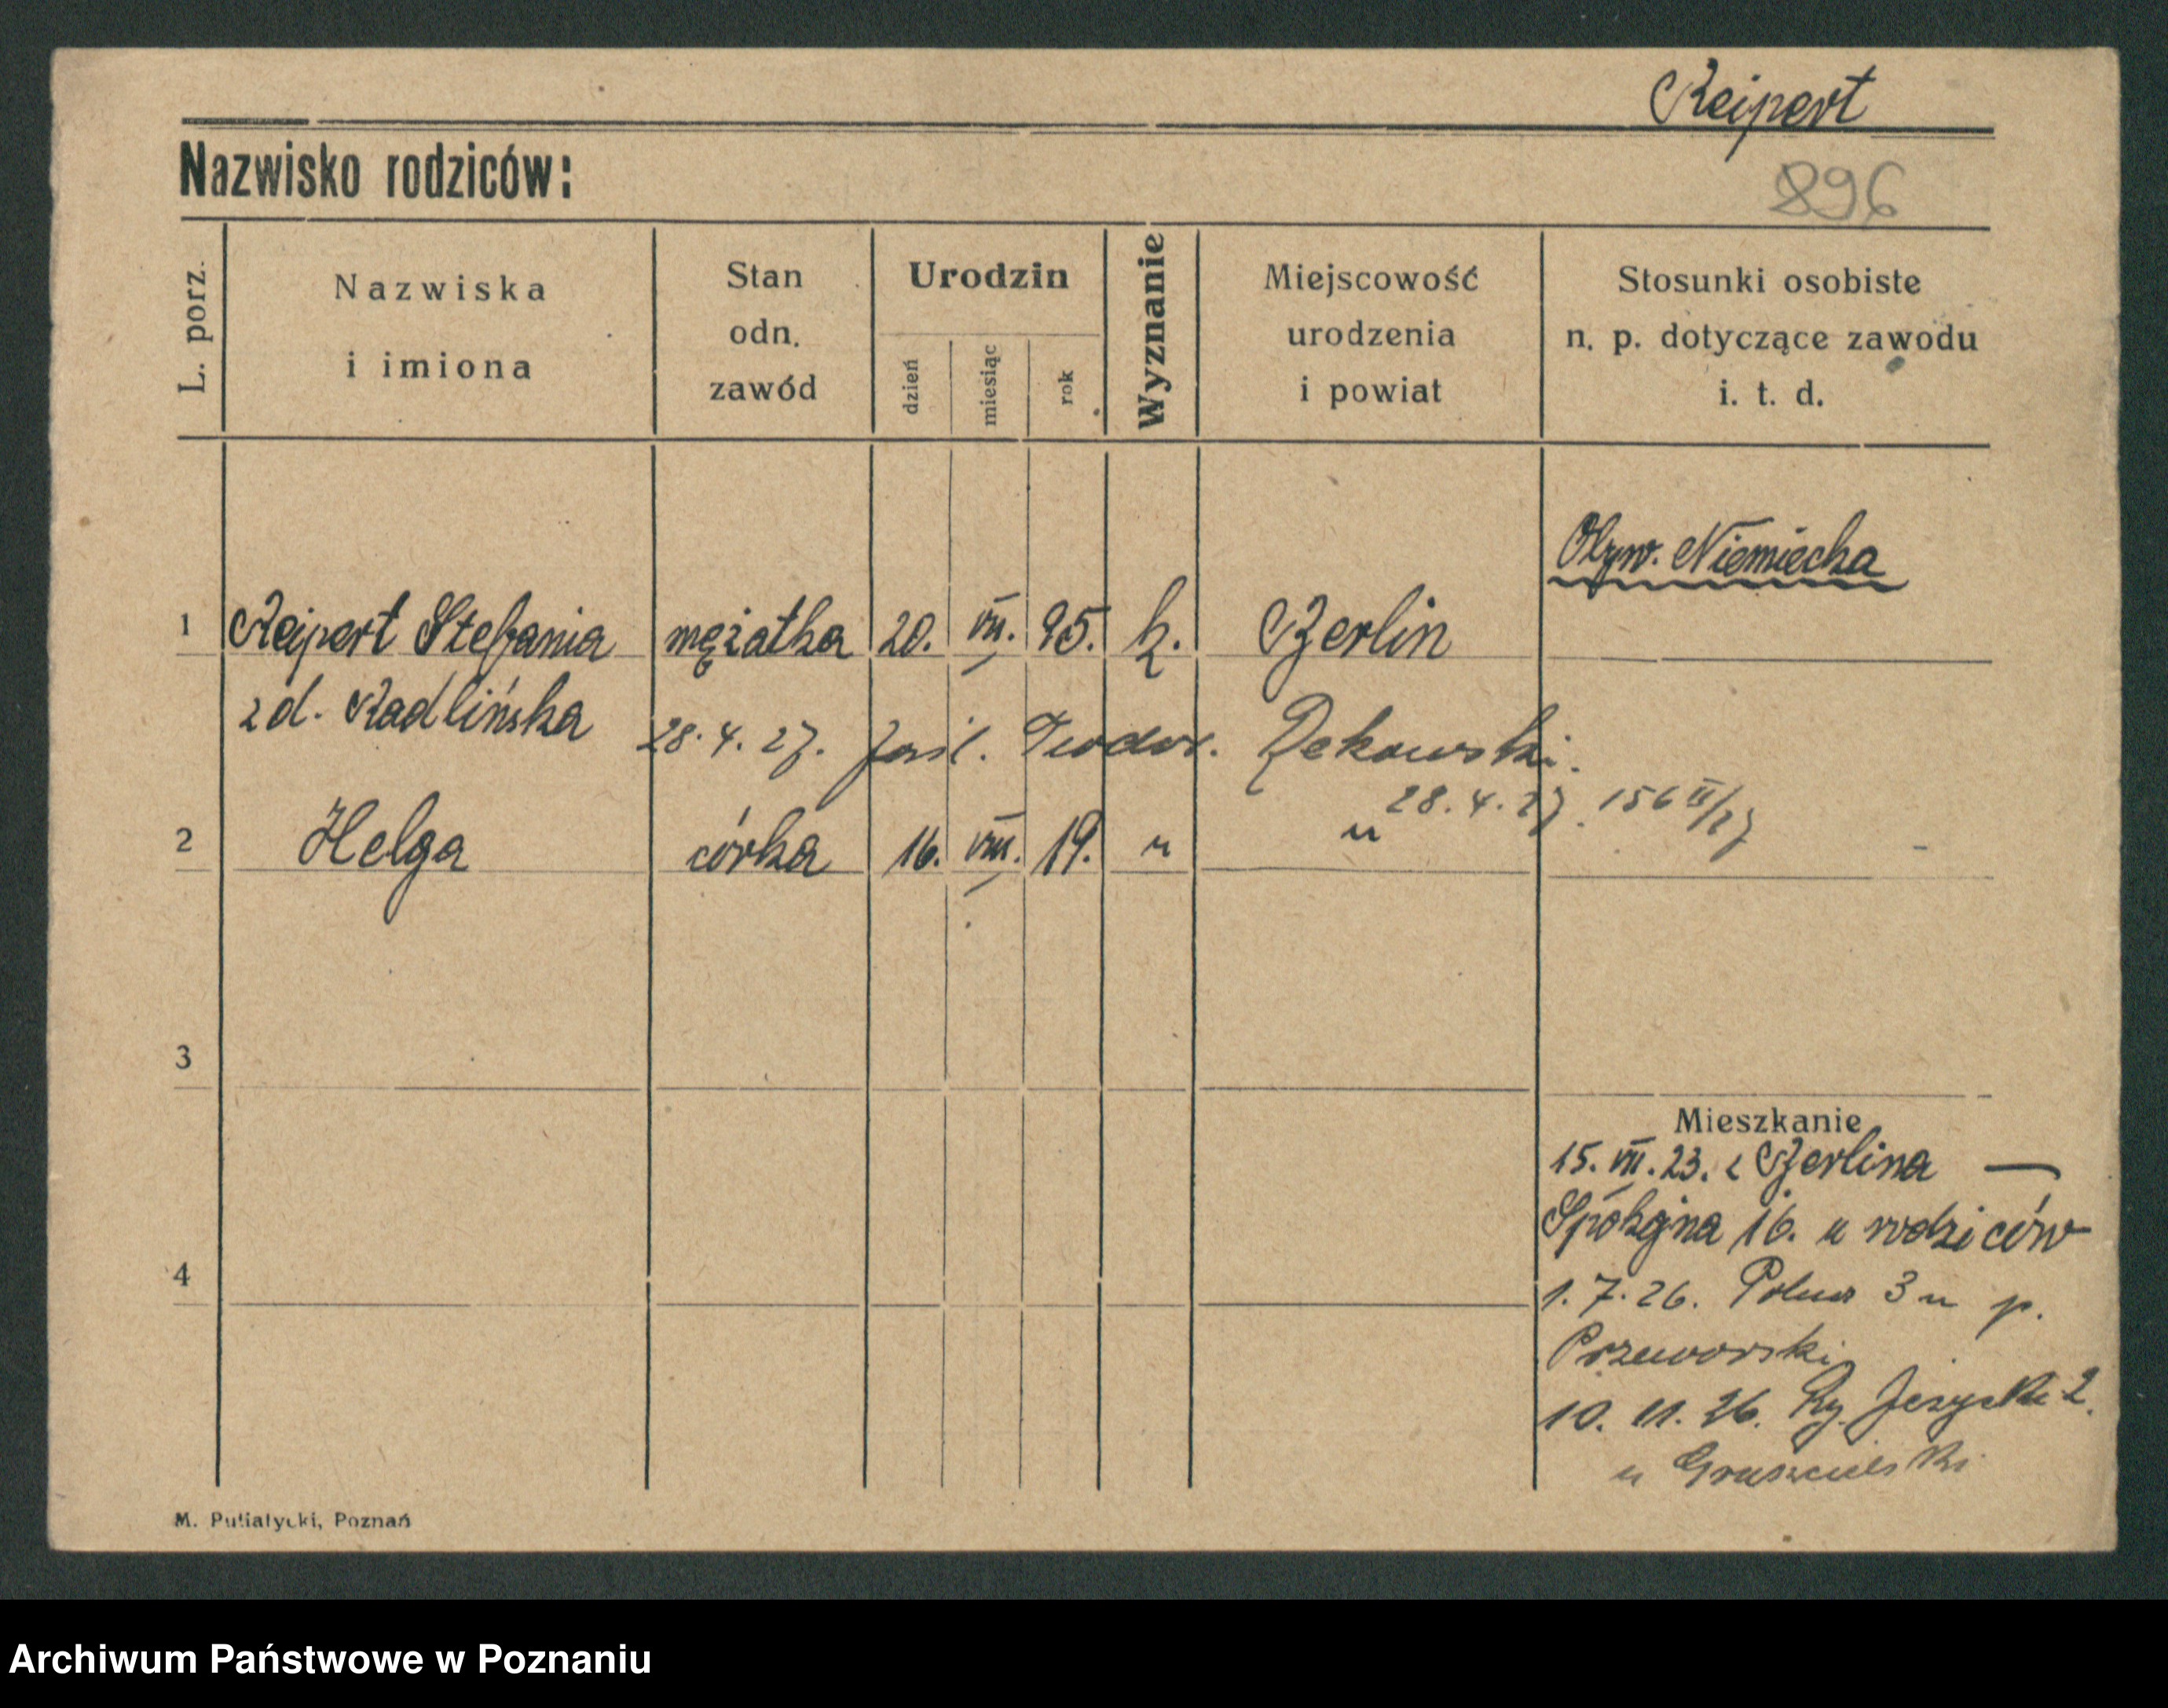 Reipert
Nazwisko rodziców:
896
L. porz.
Nazwiska
i imiona
Stan
odn.
zawód
Urodzin
dzień
miesiąc
rok
Wyznanie
Miejscowość
urodzenia
i powiat
Stosunki osobiste
n. p. dotyczące zawodu
i. t. d.
Obyw. Niemiecka
1 Reipert Stefania mężatka 20. VII. 95. k. Berlin
z d. Radlińska
28. 4. 27. Teodor. Dekowski.
28. 4. 27. 156 II/27
2 Helga córka 16. VIII. 19. " "
3
Mieszkanie
15. VII. 23. z Berlina —
Spokojna 16. u rodziców
4
1. 7. 26. 3 u p.
Przeworski
10. 11. 26. Ry. Jeżycki 2.
u
M. Putiatycki, Poznań
Archiwum Państwowe w Poznaniu